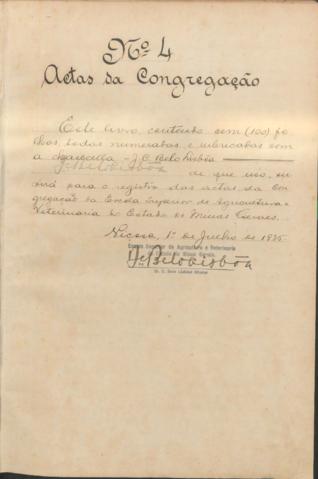 Nº 4
Actas da Congregação
Este livro, contendo cem (100) fo
lhas, todas numeradas e rubricadas com
a chancella - J. C. Bello Lisbôa
J. C. Bello Lisbôa de que uso, ser
virá para o registro das actas da Con
gregação da Escola Superior de Agricultura e
Veterinaria do Estado de Minas Geraes.
Viçosa, 1º de Julho de 1935
Escola Superior de Agricultura e Veterinaria
do Estado de Minas Geraes
J. C. Bello Lisbôa